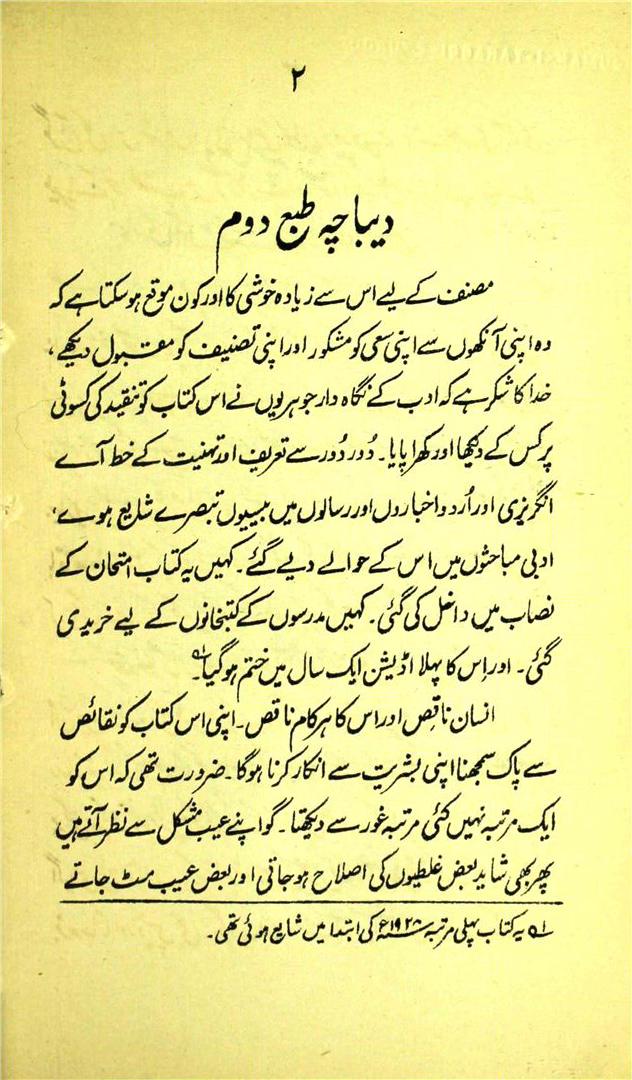 ۲
دیباچہ طبع دوم
مصنف کے لیے اس سے زیادہ خوشی کا اور کون موقع ہوسکتا ہے کہ
وہ اپنی آنکھوں سے اپنی سعی کو مشکور اور اپنی تصنیف کو مقبول دیکھے،
خدا کا شکر ہے کہ ادب کے نگاہ دار جوہریوں نے اس کتاب کو تنقید کی کسوٹی
پر کس کے دیکھا اور کھرا پایا۔ دُور دُور سے تعریف اور تہنیت کے خط آے
انگریزی اور اُردو اخباروں اور رسالوں میں بیسیوں تبصرے شایع ہوے،
ادبی مباحثوں میں اس کے حوالے دیے گئے۔ کہیں یہ کتاب امتحان کے
نصاب میں داخل کی گئی۔ کہیں مدرسوں کے کتبخانوں کے لیے خریدی
گئی۔ اور اِس کا پہلا اڈیشن ایک سال میں ختم ہوگیا۔ؔ۱
انسان ناقص اور اس کا ہر کام ناقص۔ اپنی اس کتاب کو نقائص
سے پاک سمجھنا اپنی بشریت سے انکار کرنا ہوگا۔ ضرورت تھی کہ اس کو
ایک مرتبہ نہیں کئی مرتبہ غور سے دیکھتا۔ گو اپنے عیب مشکل سے نظر آتے ہیں
پھر بھی شاید بعض غلطیوں کی اصلاح ہوجاتی اور بعض عیب مٹ جاتے
ؔ۱ یہ کتاب پہلی مرتبہ ۱۹۲۸ء کی ابتدا میں شایع ہوئی تھی۔